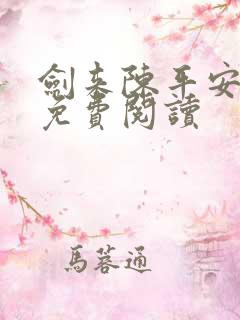 劍来陳平安
免費閱讀
馬蓉通